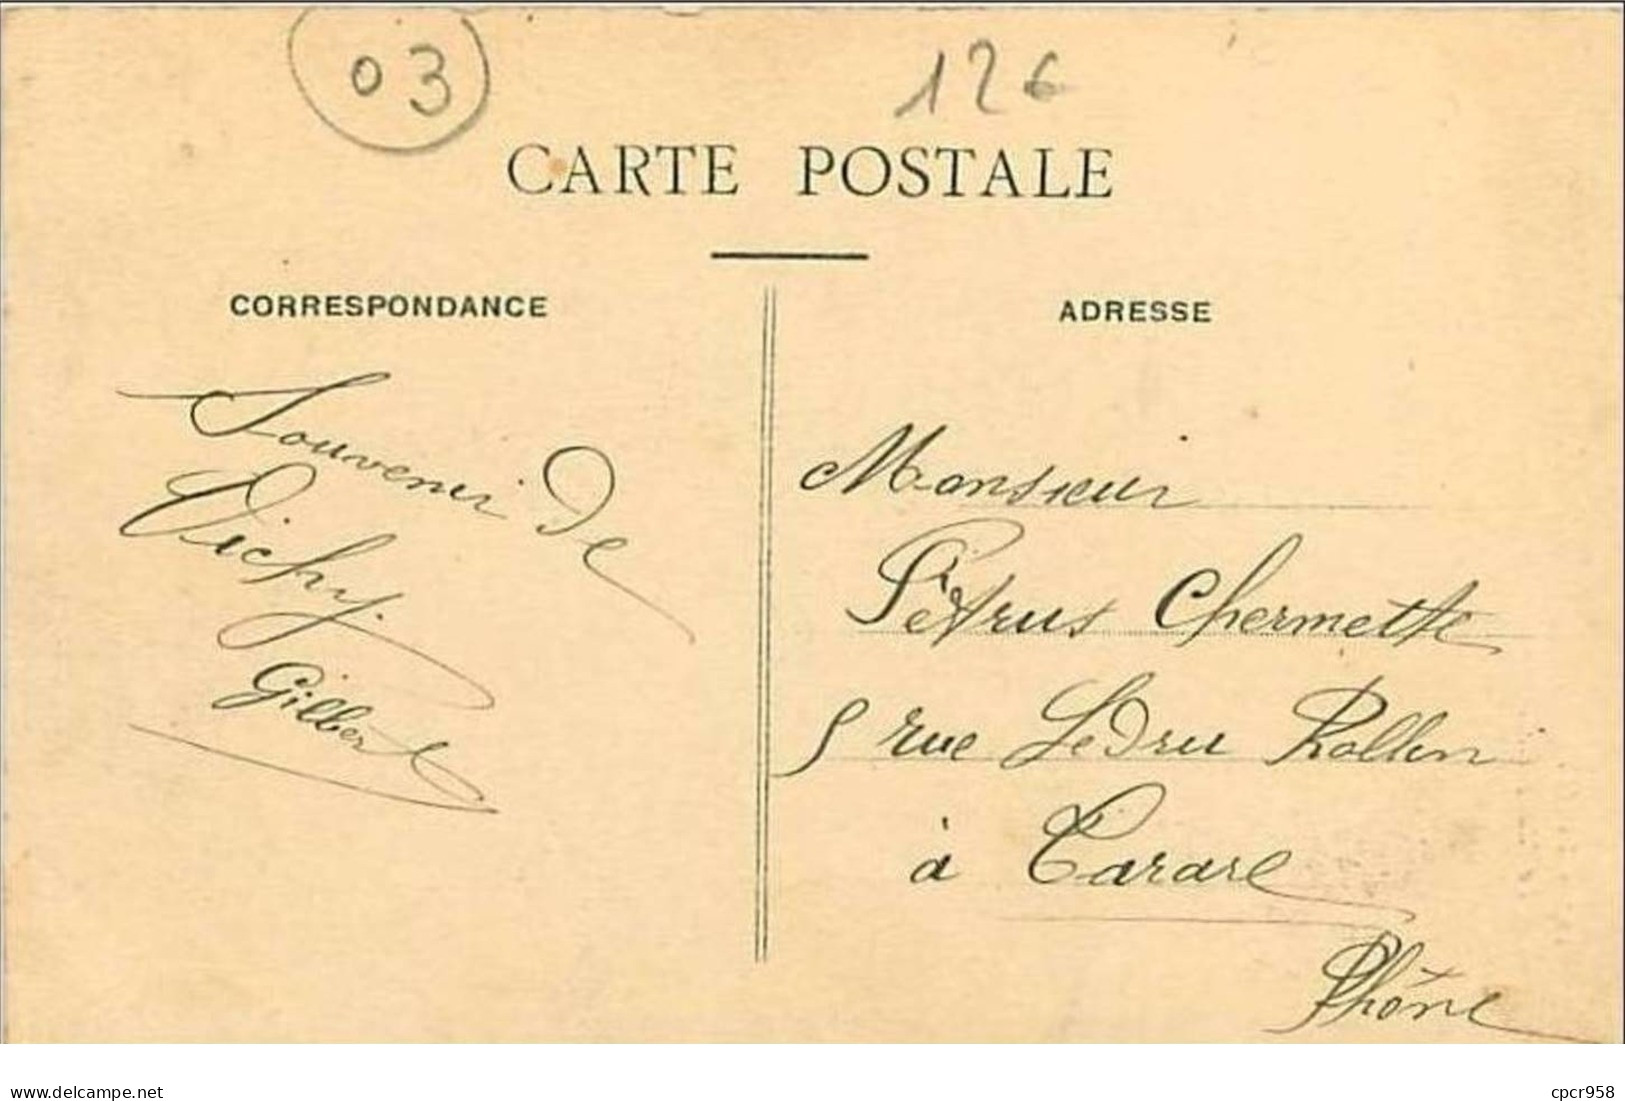 03
126
CARTE POSTALE
CORRESPONDANCE
ADRESSE
Souvenir de
Vichy.
Gilbert
Monsieur
Pétrus Chermette
5 rue Ledru Rollin
à Tarare
Rhône
www.delcampe.net
cpcr958